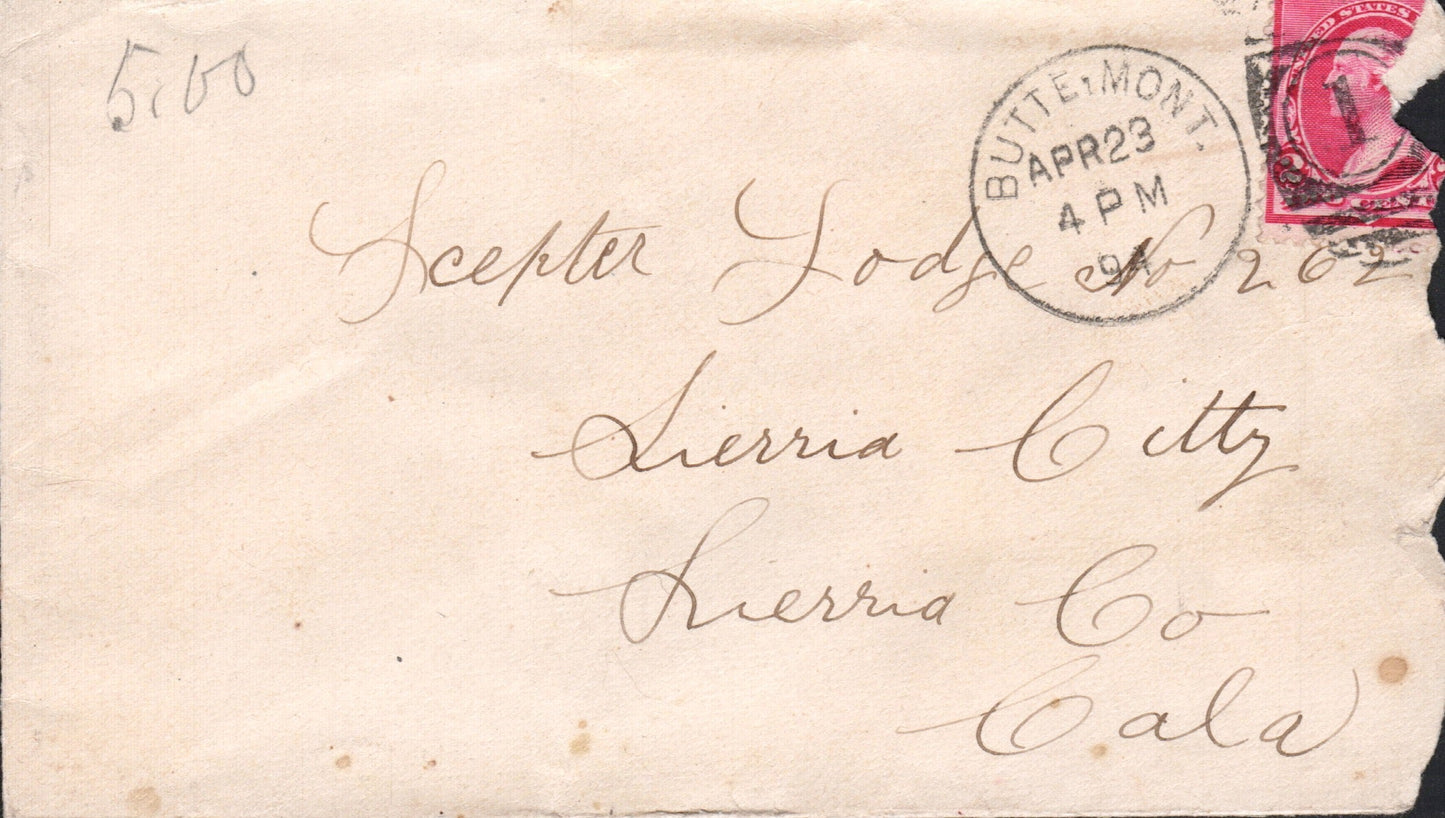 5.00
UNITED STATES
BUTTE, MONT.
APR 23
4 PM
94
1
Scepter Lodge No 262
Sierria Citty
Sierria Co
Cala